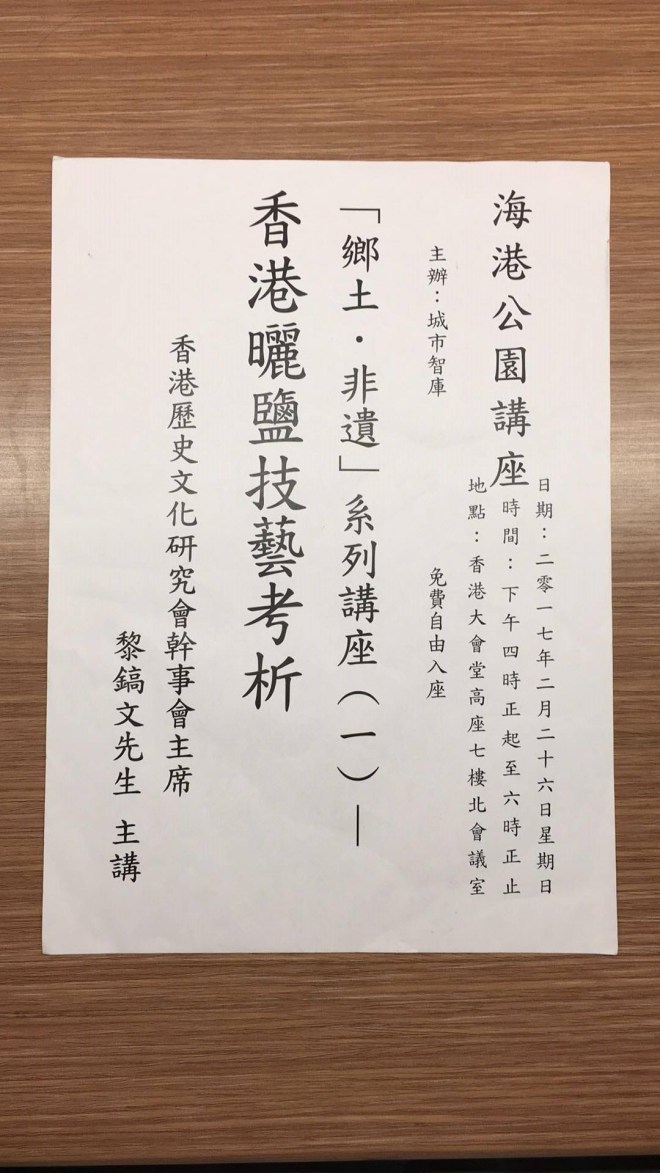 海港公園講座
日期：二零一七年二月二十六日星期日
時間：下午四時正起至六時正止
地點：香港大會堂高座七樓北會議室
主辦：城市智庫
免費自由入座
「鄉土·非遺」系列講座（一）—
香港曬鹽技藝考析
香港歷史文化研究會幹事會主席
黎鎬文先生 主講